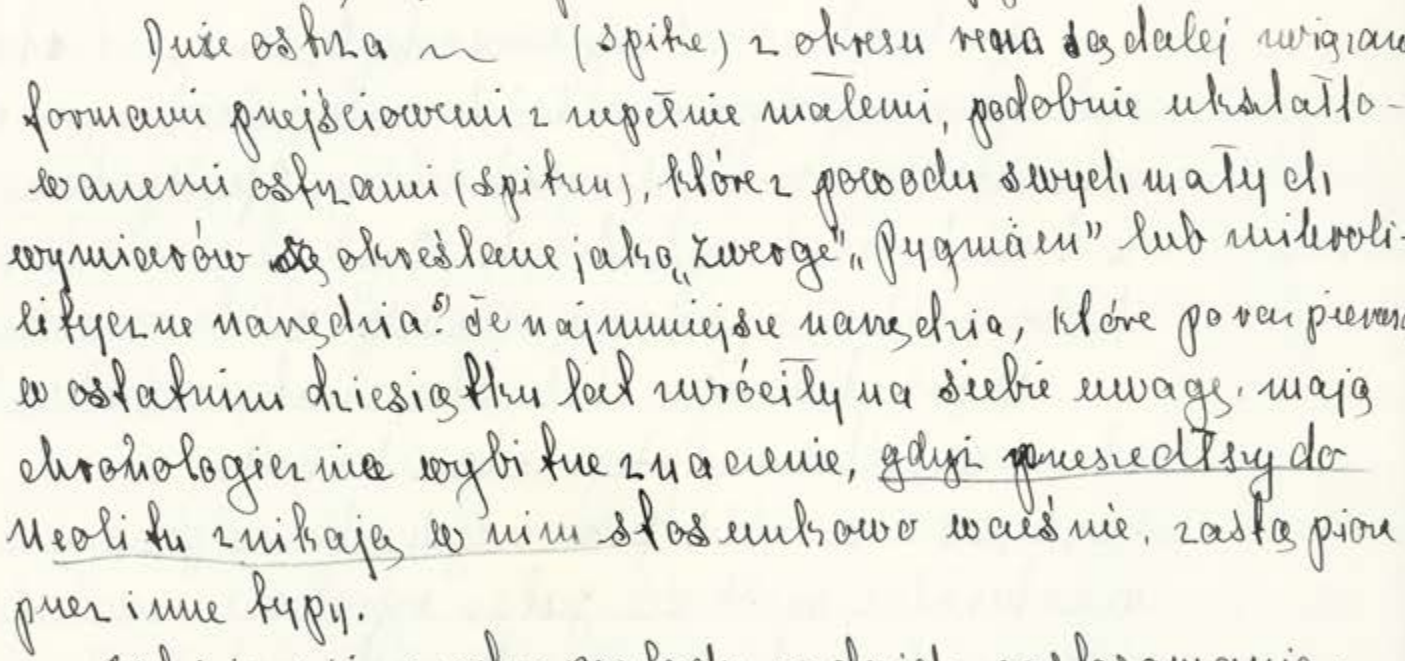 Duże ostrza ~ (spitze) z okresu rena są dalej związan
formami przejściowemi z zupełnie małemi, podobnie ukształto-
wanemi ostrzami (spitzen), które z powodu swych małych
wymiarów są określane jako „Zwerge", „Pygmäen" lub mikroli-
lityczne narzędzia.⁵⁾ Te najmniejsze narzędzia, które po raz pierwsz
w ostatnim dziesiątku lat zwróciły na siebie uwagę, mają
chronologicznie wybitne znaczenie, gdyż przeszedłszy do
Neolitu znikają w nim stosunkowo wcześnie, zastąpion
przez inne typy.